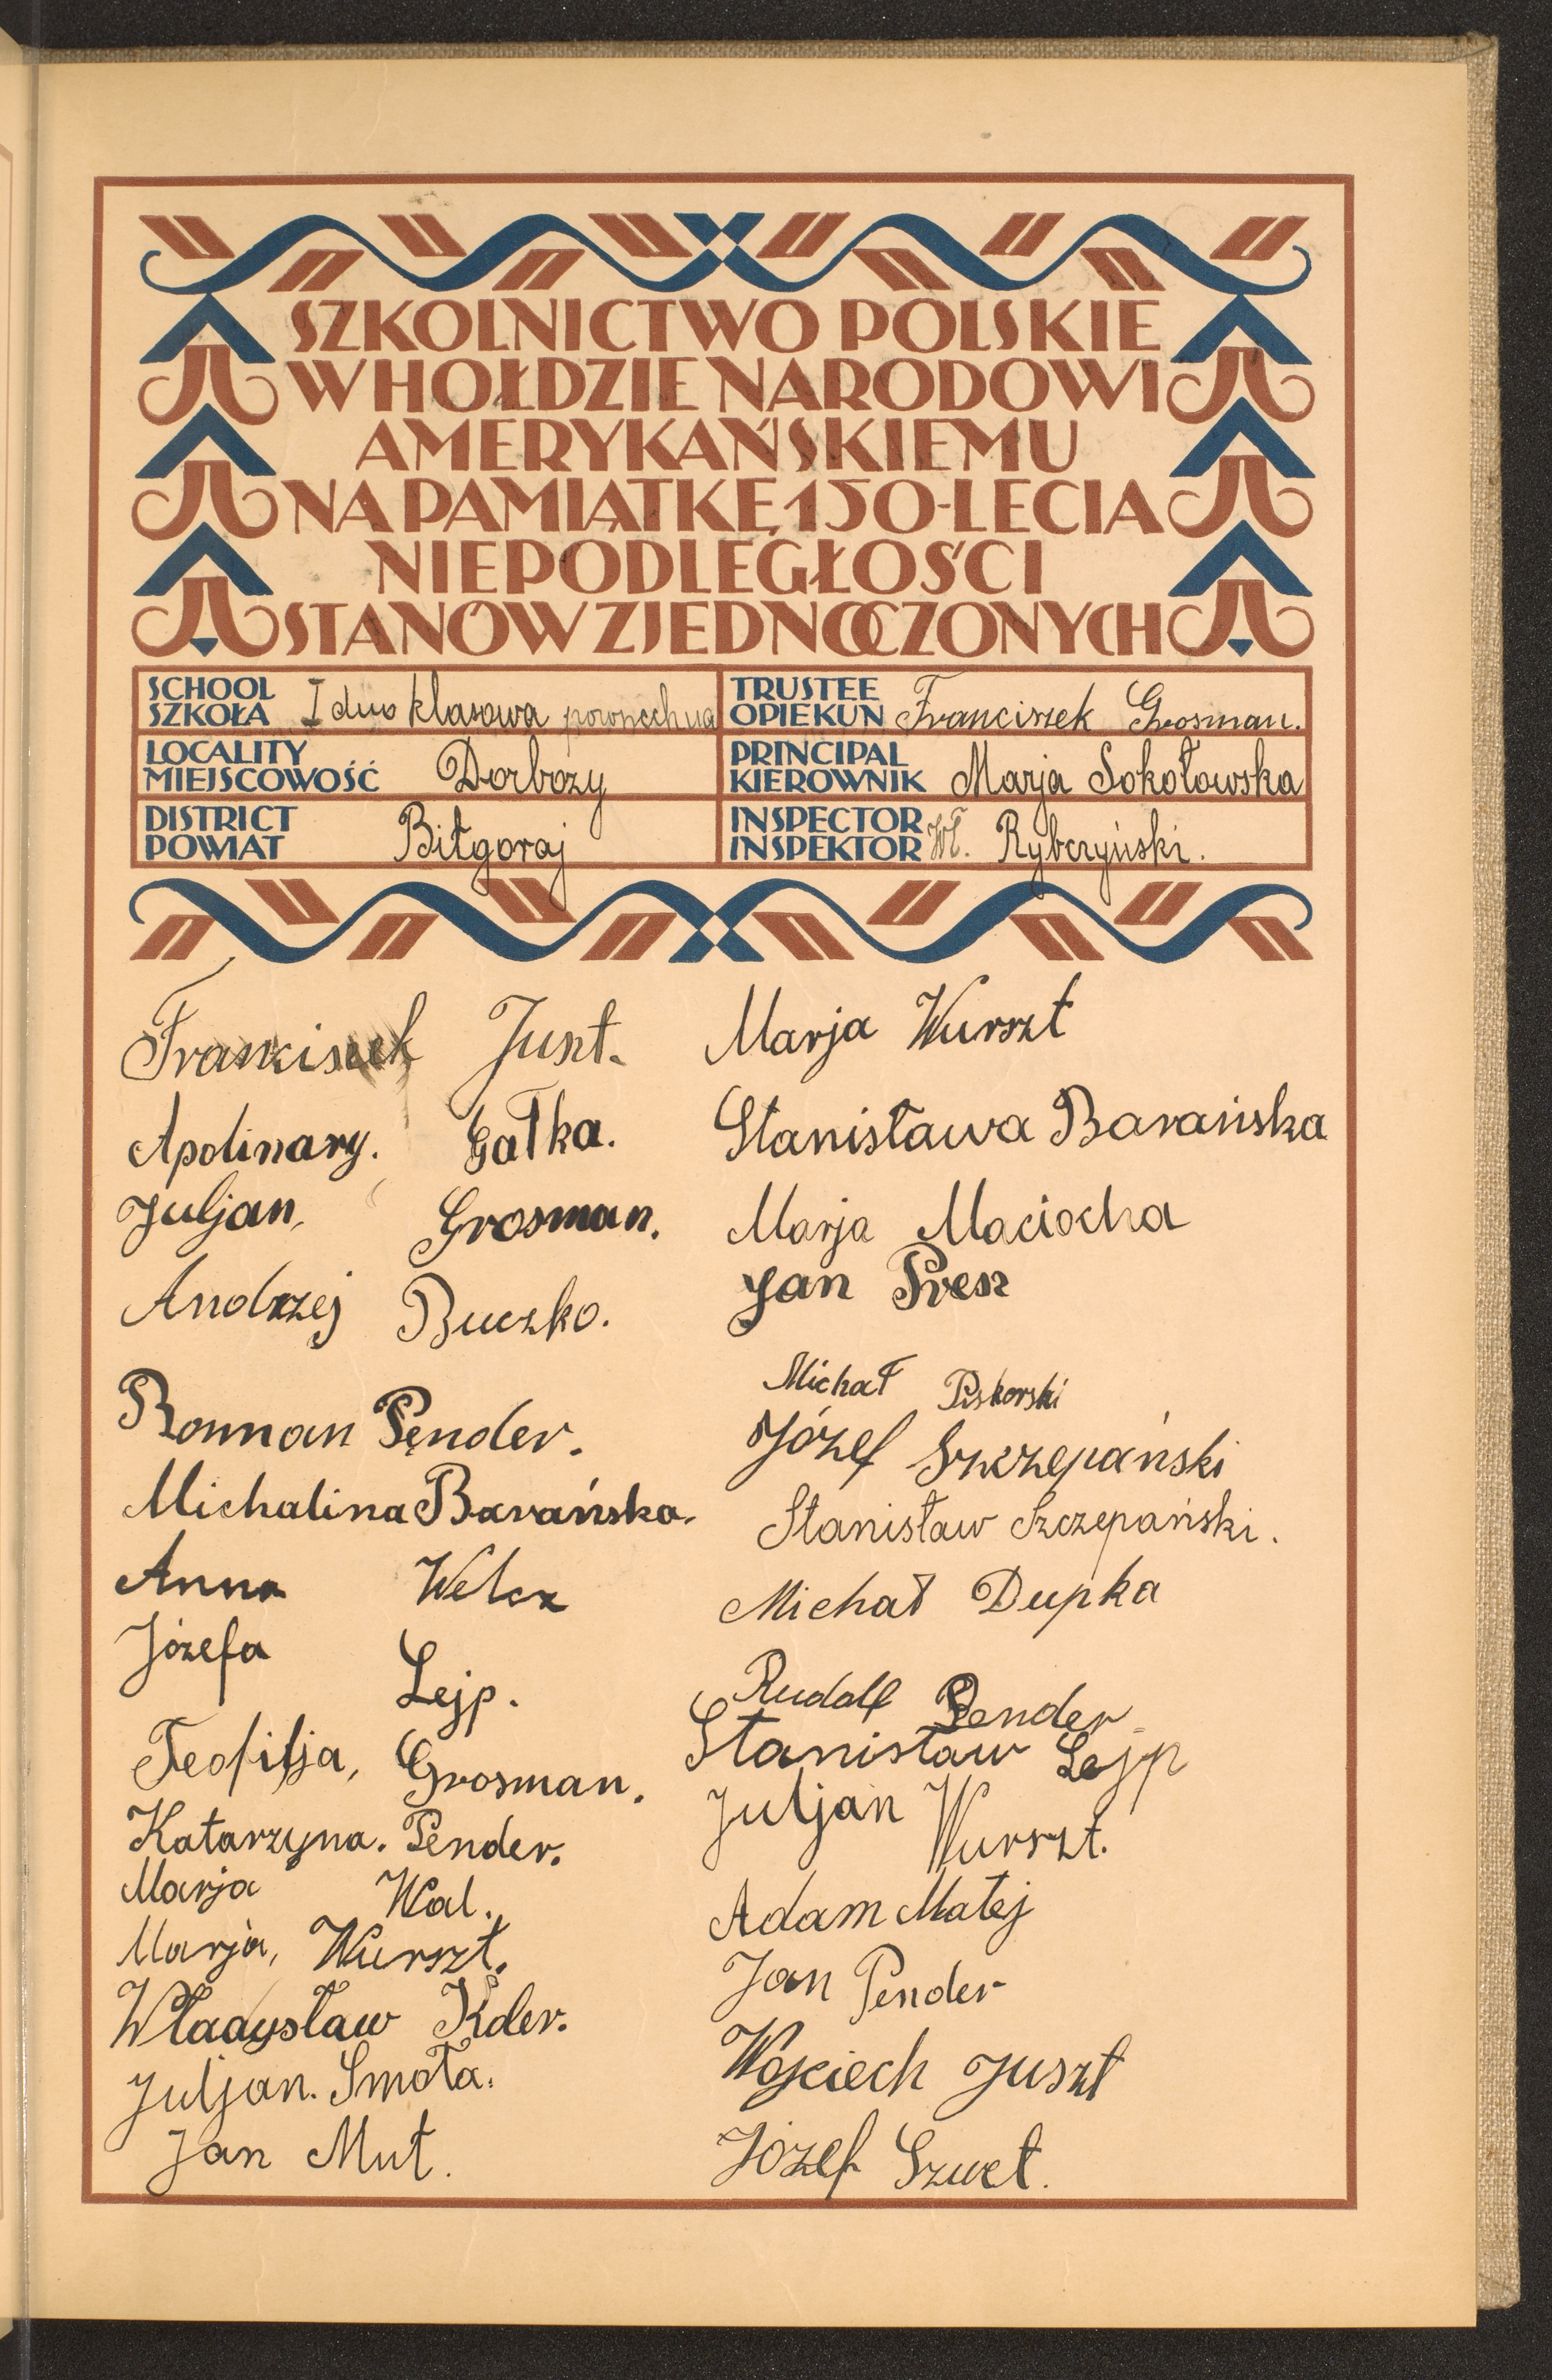 SZKOLNICTWO POLSKIE
W HOŁDZIE NARODOWI
AMERYKAŃSKIEMU
NA PAMIĄTKĘ 150-LECIA
NIEPODLEGŁOŚCI
STANÓW ZJEDNOCZONYCH
SCHOOL
SZKOŁA I dwo klasowa powszechna
TRUSTEE
OPIEKUN Franciszek Grosman.
LOCALITY
MIEJSCOWOŚĆ Dorbozy
PRINCIPAL
KIEROWNIK Marja Sokołowska
DISTRICT
POWIAT Biłgoraj
INSPECTOR
INSPEKTOR Wł. Rybczyński.
Franciszek Juszt.
Apolinary. Gałka.
Juljan, Grosman.
Andrzej Buczko.
Roman Pender.
Michalina Barańska.
Anna Welcz
Józefa Lejp.
Teofilja, Grosman.
Katarzyna. Pender.
Marja Wal.
Marja, Wurszt.
Władysław Kder.
Juljan. Smoła.
Jan Mut.
Marja Wurszt
Stanisława Barańska
Marja Maciocha
Jan Presz
Michał Piskorski
Józef Szczepański
Stanisław Szczepański.
Michał Dupka
Rudolf Pender
Stanisław Lejp
Juljan Wurszt.
Adam Matej
Jan Pender
Wojciech Juszt
Józef Szwet.